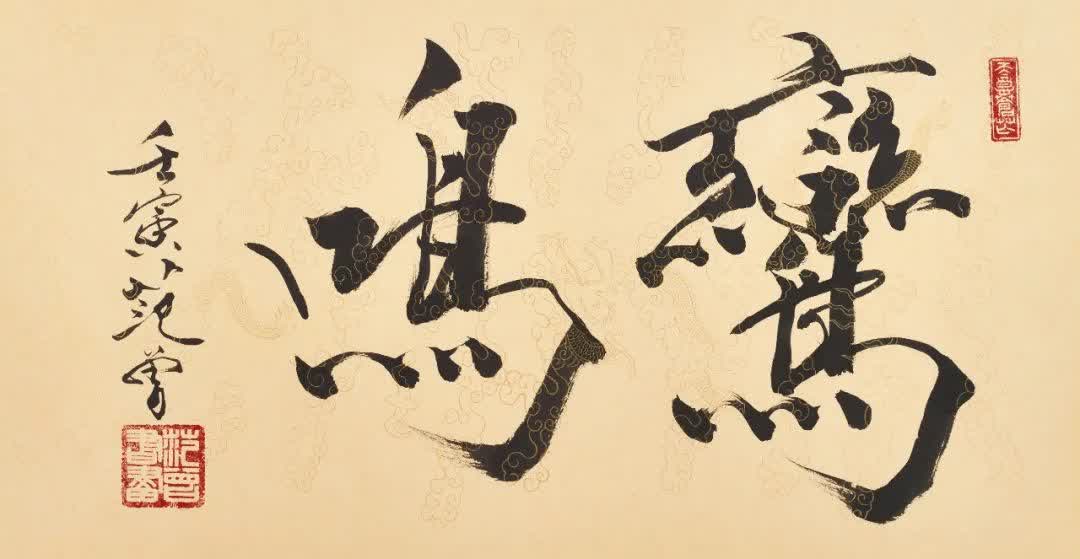 鸞鳴
壬寅范曾